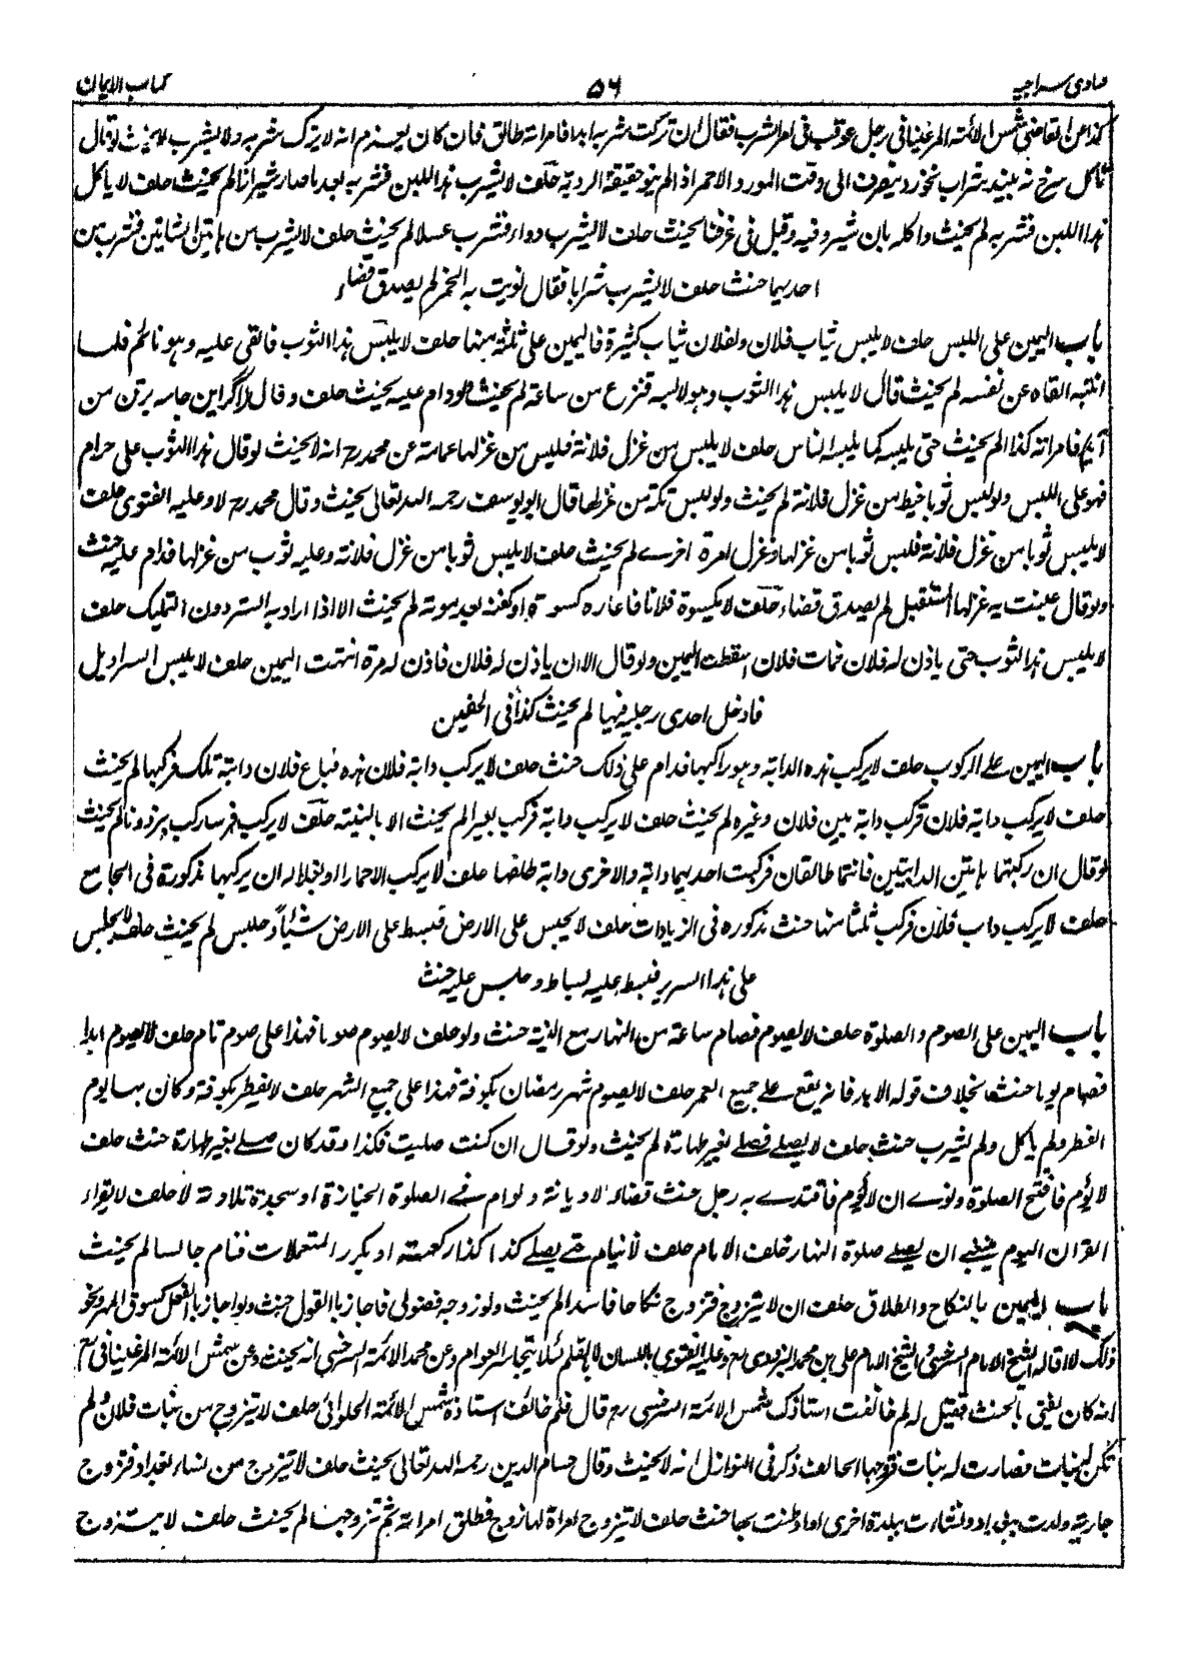 فتاوى سراجيه ٥٦ كتاب الايمان
القاضى شمس الائمة المرغينانى فى رجل عوتب فى امر الشرب فقال ان تركت شربه ابدا فامراته طالق فان كان يعزم انه لا يترك شربه ولا يشرب لا يحنث لو قال
كل سرخ نه بنيد شراب نخورد ينصرف الى وقت الورد الاحمر اذا لم ينو حقيقة الرديه حلف لا يشرب هذا اللبن فشربه بعد ما صار شيرازا لم يحنث حلف لا ياكل
هذا اللبن فشربه لم يحنث واكله بان يثرد فيه وقيل فى عرفنا يحنث حلف لا يشرب دواء فشرب عسلا لم يحنث حلف لا يشرب من هاتين الشاتين فشرب من
احديهما حنث حلف لا يشرب شرابا فقال نويت به الخمر لم يصدق قضاء
باب اليمين على اللبس حلف لا يلبس ثياب فلان ولفلان ثياب كثيرة فاليمين على ثلثة منها حلف لا يلبس هذا الثوب فالقى عليه وهو نائم فلما
انتبه القاه عن نفسه لم يحنث قال لا يلبس هذا الثوب وهو لابسه فنزع من ساعة لم يحنث ولو دام عليه يحنث حلف وقال اگر اين جامه برتن من
آيد فامراته كذا لم يحنث حتى يلبسه كما يلبسه الناس حلف لا يلبس من غزل فلانة فلبس من غزلها عمامة عن محمد رح انه لا يحنث لو قال هذا الثوب على حرام
فهو على اللبس ولو لبس ثوبا خيط من غزل فلانة لم يحنث ولو لبس تكة من غزلها قال ابو يوسف رحمه الله تعالى يحنث وقال محمد رح لا وعليه الفتوى حلف
لا يلبس ثوبا من غزل فلانة فلبس ثوبا من غزلها وغزل امرة اخرے لم يحنث حلف لا يلبس ثوبا من غزل فلانة وعليه ثوب من غزلها فدام عليه حنث
ولو قال عنيت به غزلها المستقبل لم يصدق قضاء حلف لا يكسوة فلانا فاعاره كسوة او كفنه بعد موته لم يحنث الا اذا اراد به الستر دون التمليك حلف
لا يلبس هذا الثوب حتى ياذن له فلان فمات فلان سقطت اليمين ولو قال الا ان ياذن له فلان فاذن له مرة انتهت اليمين حلف لا يلبس السراويل
فادخل احدى رجليه فيها لم يحنث كذا فى الخفين
باب اليمين على الركوب حلف لا يركب هذه الدابة وهو راكبها فدام على ذلك حنث حلف لا يركب دابة فلان هذه فباع فلان دابة تلك فركبها لم يحنث
حلف لا يركب دابة فلان فركب دابة بين فلان وغيره لم يحنث حلف لا يركب دابة فركب بعيرا لم يحنث الا بالنية حلف لا يركب فرسا ركب برذونا لم يحنث
لو قال ان ركبتما هاتين الدابتين فانتما طالقان فركبت احديهما دابة والاخرى دابة طلقتا حلف لا يركب الا حمارا او بغلا له ان يركبها مذكورة فى الجامع
حلف لا يركب دواب فلان فركب ثلثا منها حنث مذكوره فى الزيادات حلف لا يجلس على الارض فبسط على الارض شيئا وجلس لم يحنث حلف لا يجلس
على هذا السرير فبسط عليه بساط وجلس عليه حنث
باب اليمين على الصوم والصلوة حلف لا يصوم فصام ساعة من النهار مع النية حنث ولو حلف لا يصوم صوما فهذا على صوم تام حلف لا يصوم ابدا
فصام يوما حنث بخلاف قوله الابد فانه يقع على جميع العمر حلف لا يصوم شهر رمضان بكوفة فهذا على جميع الشهر حلف لا يفطر بكوفة وكان بها يوم
الفطر ولم ياكل ولم يشرب حنث حلف لا يصلے فصلے بغير طهارة لم يحنث ولو قال ان كنت صليت فكذا وقد كان صلے بغير طهارة حنث حلف
لا يؤم فافتح الصلوة ونوے ان لا يؤم فاقتدے به رجل حنث قضاء لا ديانة ولو ام فے الصلوة الجنازة او سجدة تلاوة لا حلف لا يقراء
القران اليوم ينبغے ان يصلے صلوة النهار خلف الامام حلف لا ينام حتے يصلے كذا كذا ركعته او يكرر المتعملات فنام جالسا لم يحنث
باب اليمين بالنكاح والطلاق حلف ان لا يتزوج فتزوج نكاحا فاسدا لم يحنث ولو زوجه فضولى فاجاز بالقول حنث ولو اجاز بالفعل كسوق المهر ونحو
ذلك لا قاله الشيخ الامام السرخسى والشيخ الامام على بن محمد البزدوى رح وعليه الفتوى باللسان لا بالقلم لئلا يتجاسر العوام وعن محمد الائمة السرخسى انه يحنث وعن شمس الائمة المرغينانى رح
انه كان يفتى بالحنث فقيل له لم خالفت استاذك شمس الائمة السرخسى رح قال فلم خالف استاذه شمس الائمة الحلوانى حلف لا يتزوج من بنات فلان ولم
تكن له بنات فصارت له بنات فتزوجها الحالف ذكر فى النوازل انه لا يحنث وقال حسام الدين رحمه الله تعالى يحنث حلف لا يتزوج من نساء بغداد فتزوج
جارية ولدت ببغداد ونشاءت ببلدة اخرى او اوطنت بها حنث حلف لا يتزوج امراة لها زوج فطلق امراته ثم تزوجها لم يحنث حلف لا يتزوج